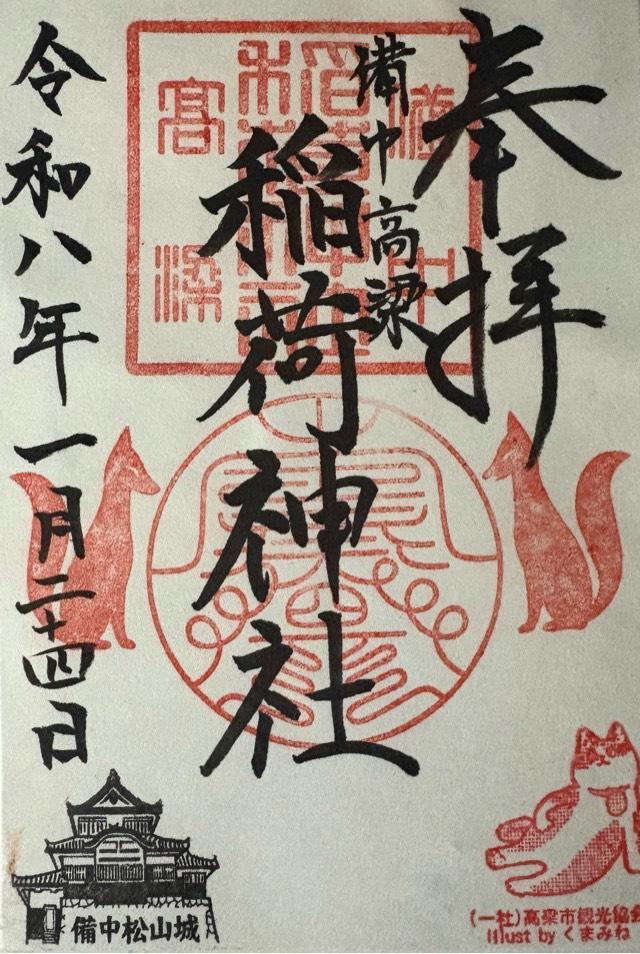 奉拝
備中高梁
稲荷神社
令和八年一月二十四日
備中
稲荷神社
高梁
備中松山城
(一社)高梁市観光協会
Illust by くまみね